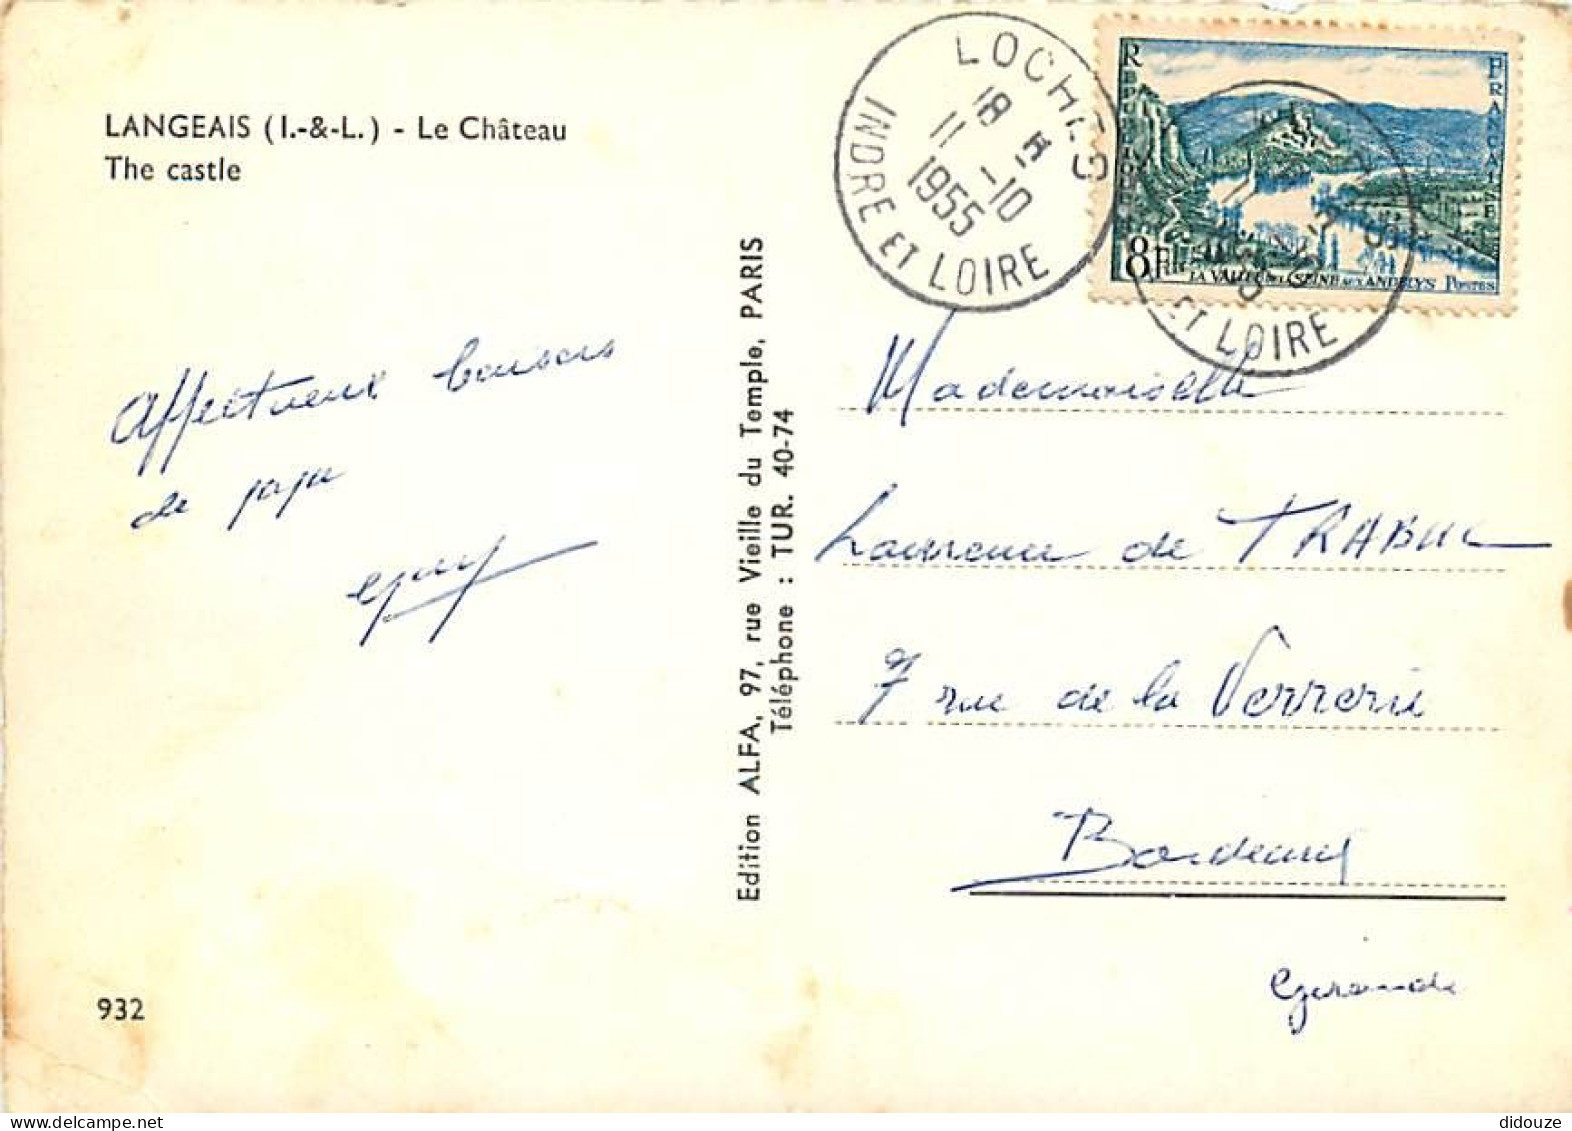 LANGEAIS (I.-&-L.) - Le Château
The castle
Affectueux baisers
de papa
932
Edition ALFA, 97, rue Vieille du Temple, PARIS
Téléphone : TUR. 40-74
LOCHES
18 H
11 -10
1955
INDRE ET LOIRE
RÉPUBLIQUE FRANÇAISE
8F
LA VALLÉE DE LA SEINE AUX ANDELYS POSTES
ET LOIRE
Mademoiselle
Laurence de TRABUC
7 rue de la Verrerie
Bordeaux
Gironde
didouze